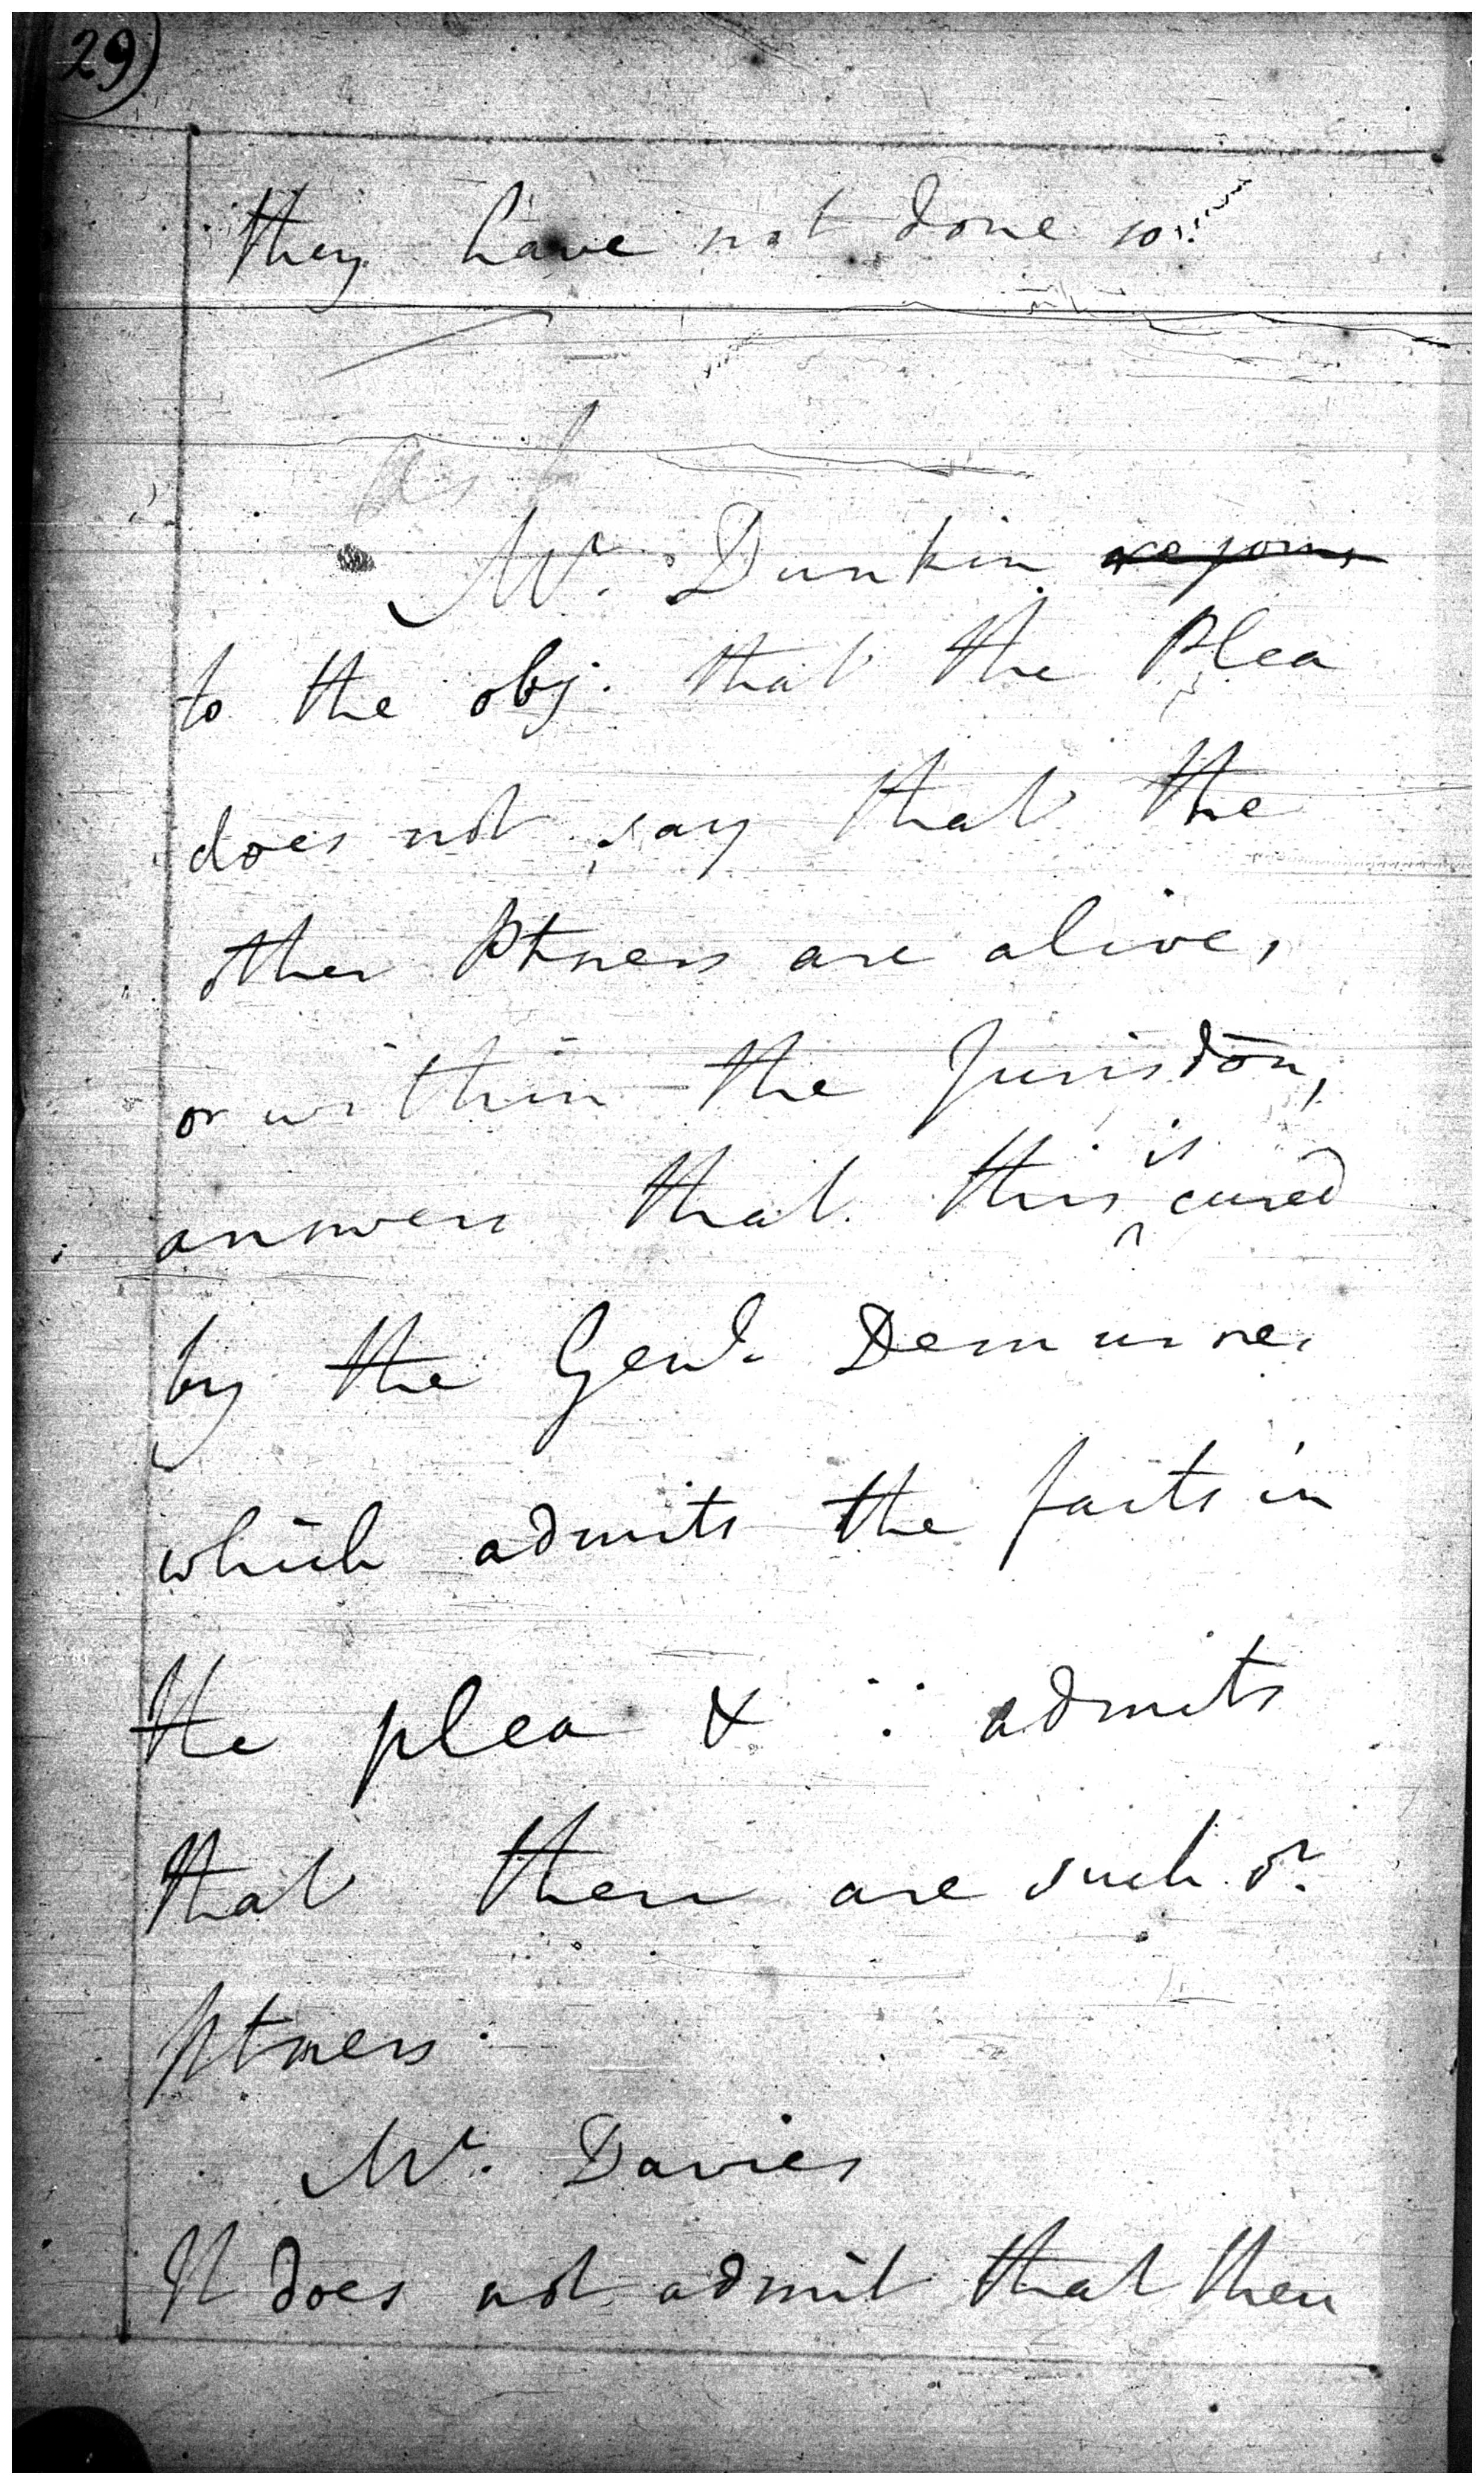 29)
they have not done so
Mr. Dunkin
to the obj. that the Plea
does not say that the
other Ptners are alive,
or within the Jurisdōn,
answers that this is cured
by the Genl. Demurrer
which admits the facts in
the plea & ∵ admits
that there are such or.
Ptners.
Mr. Davies
It does not admit that there